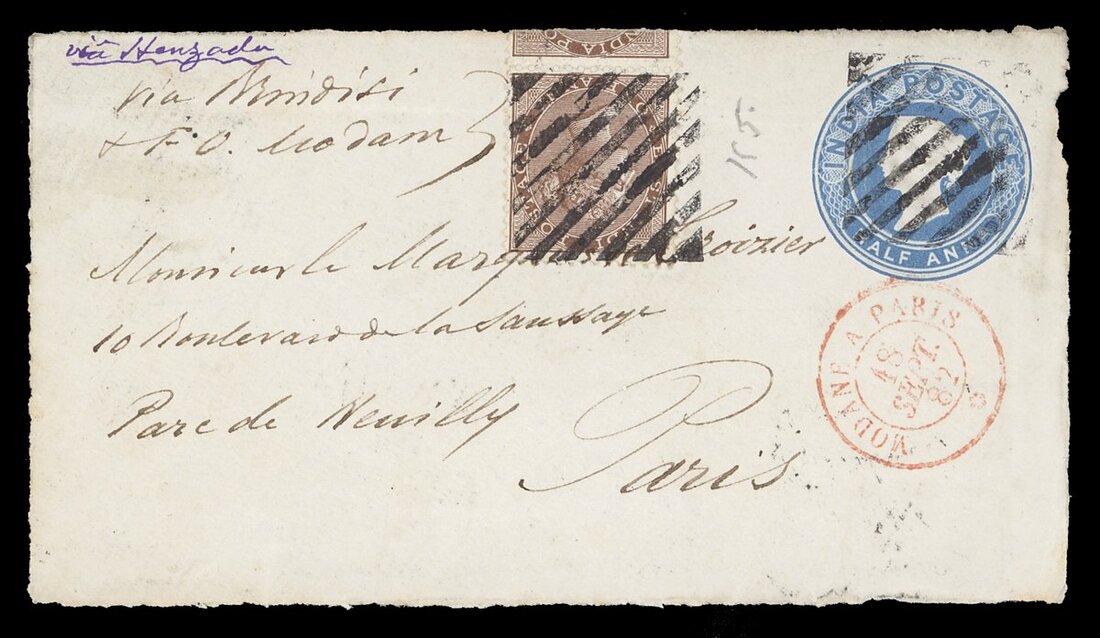 via Henzada
via Brindisi
& F. O. Modane
INDIA PO
INDIA POSTAGE
HALF ANNA
Monsieur le Marquis de Croizier
10 Boulevard de la Saussaye
Parc de Neuilly
Paris
MODANE A PARIS
18
SEPT.
82